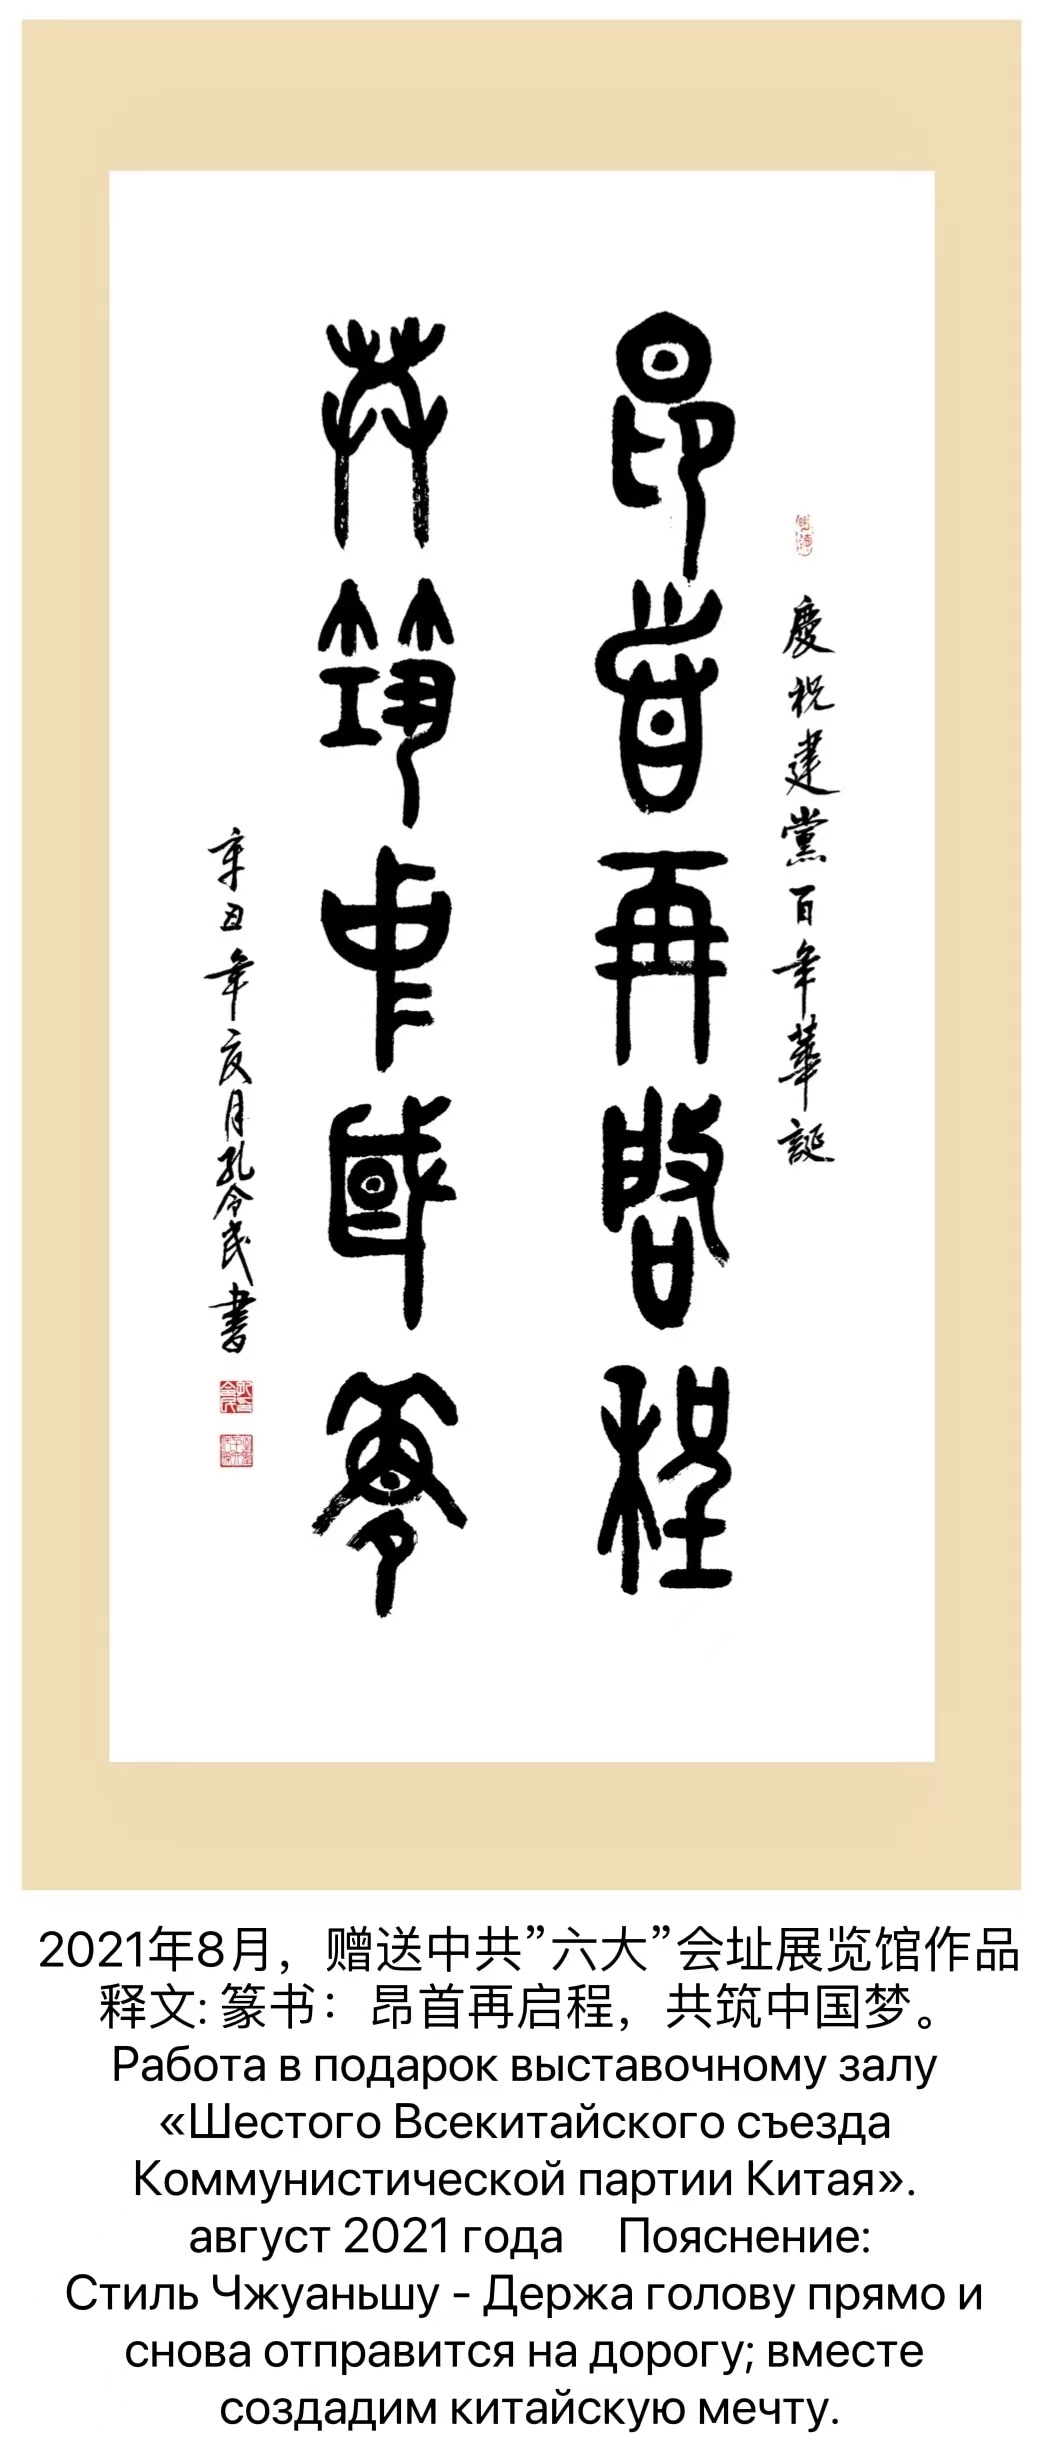 慶祝建黨百年華誕
昂首再啓程
共筑中國夢
辛丑年夜月孔令民書
2021年8月，赠送中共”六大”会址展览馆作品
释文: 篆书：昂首再启程，共筑中国梦。
Работа в подарок выставочному залу
«Шестого Всекитайского съезда
Коммунистической партии Китая».
август 2021 года Пояснение:
Стиль Чжуаньшу - Держа голову прямо и
снова отправится на дорогу; вместе
создадим китайскую мечту.